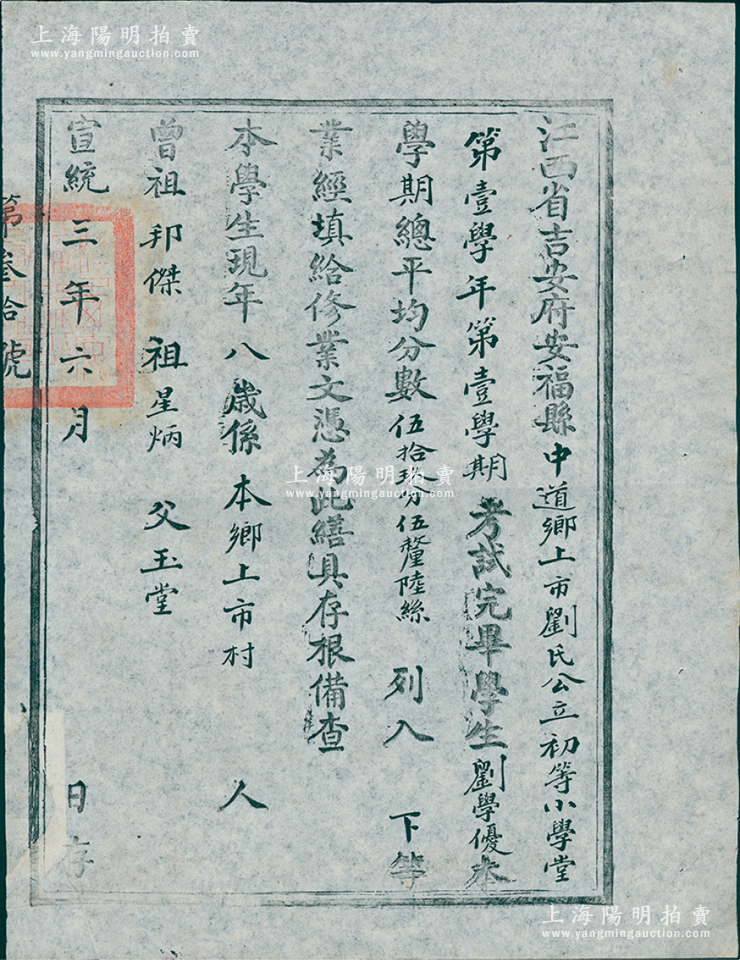 上海陽明拍賣
www.yangmingauction.com
江西省吉安府安福縣中道鄉上市劉氏公立初等小學堂
第壹學年第壹學期考試完畢學生劉學優本
學期總平均分數伍拾玖分伍釐陸絲 列入 下等
業經填給修業文憑為此繕具存根備查
本學生現年八歲係本鄉上市村 人
曾祖邦傑 祖星炳 父玉堂
宣統三年六月 日存
第叁拾號
上海陽明拍賣
www.yangmingauction.com
上海陽明拍賣
www.yangmingauction.com